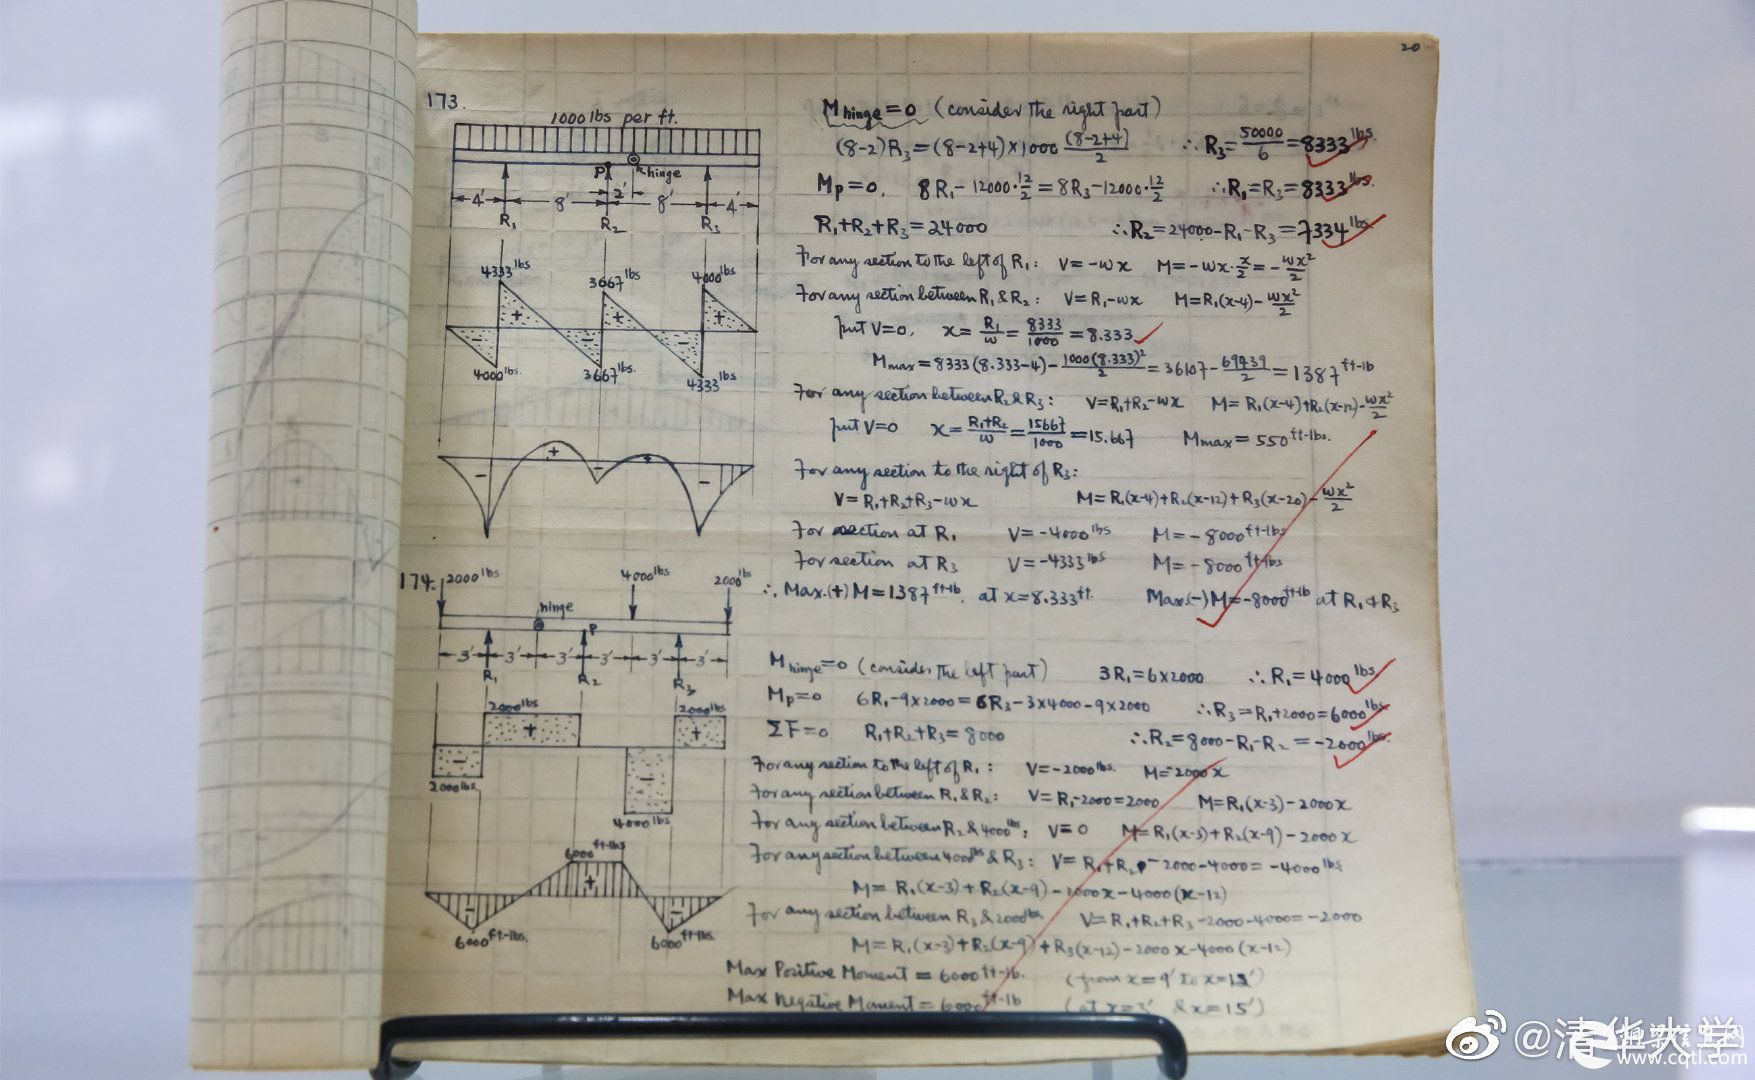 20
173.
1000 lbs per ft.
P
hinge
2'
4'
8'
8'
4'
R₁
R₂
R₃
4333 lbs
3667 lbs
4000 lbs
+
+
+
-
-
-
4000 lbs.
3667 lbs.
4333 lbs
-
+
-
+
-
M hinge=0 (consider the right part)
(8-2)R₃=(8-2+4)×1000 (8-2+4)/2 ∴ R₃=50000/6=8333 lbs.
Mp=0. 8R₁-12000·12/2=8R₃-12000·12/2 ∴R₁=R₃=8333 lbs.
R₁+R₂+R₃=24000 ∴R₂=24000-R₁-R₃=7334 lbs
For any section to the left of R₁: V=-wx M=-wx·x/2=-wx²/2
For any section between R₁ & R₂: V=R₁-wx M=R₁(x-4)-wx²/2
put V=0. x=R₁/w=8333/1000=8.333
Mmax=8333(8.333-4)-1000(8.333)²/2=36107-69439/2=1387 ft-lb
For any section between R₂ & R₃: V=R₁+R₂-wx M=R₁(x-4)+R₂(x-12)-wx²/2
put V=0 x=R₁+R₂/w=15667/1000=15.667 Mmax=550 ft-lbs.
For any section to the right of R₃:
V=R₁+R₂+R₃-wx M=R₁(x-4)+R₂(x-12)+R₃(x-20)-wx²/2
For section at R₁ V=-4000 lbs M=-8000 ft-lbs
For section at R₃ V=-4333 lbs M=-8000 ft-lbs
∴ Max.(+) M=1387 ft-lb. at x=8.333 ft. Max(-) M=-8000 ft-lb at R₁ & R₃
174.
2000 lbs
4000 lbs
2000 lbs
hinge
P
3'
3'
3'
3'
3'
3'
R₁
R₂
R₃
2000 lbs
2000 lbs
+
+
-
-
2000 lbs
4000 lbs
6000 ft-lbs
+
-
-
6000 ft-lbs.
6000 ft-lbs.
M hinge=0 (consider the left part) 3R₁=6×2000 ∴ R₁=4000 lbs.
Mp=0 6R₁-9×2000=6R₃-3×4000-9×2000 ∴R₃=R₁+2000=6000 lbs.
ΣF=0 R₁+R₂+R₃=8000 ∴R₂=8000-R₁-R₂=-2000 lbs.
For any section to the left of R₁: V=-2000 lbs. M=-2000x
For any section between R₁ & R₂: V=R₁-2000=2000 M=R₁(x-3)-2000x
For any section between R₂ & 4000 lbs: V=0 M=R₁(x-3)+R₂(x-9)-2000x
For any section between 4000 lbs & R₃: V=R₁+R₂-2000-4000=-4000 lbs
M=R₁(x-3)+R₂(x-9)-2000x-4000(x-12)
For any section between R₃ & 2000 lbs. V=R₁+R₂+R₃-2000-4000=-2000
M=R₁(x-3)+R₂(x-9)+R₃(x-12)-2000x-4000(x-12)
Max Positive Moment=6000 ft-lb. (from x=9' to x=12')
Max Negative Moment=6000 ft-lb (at x=3' & x=15')
@清华大学
www.cqtl.com